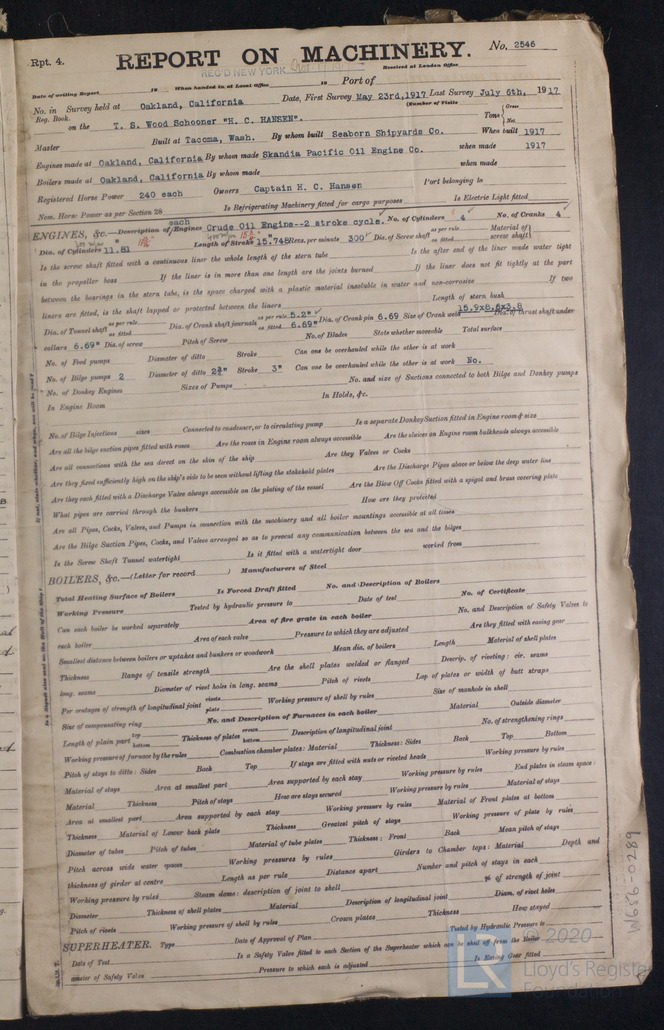 Rpt. 4.
REPORT ON MACHINERY.
No. 2546
REC'D NEW YORK
Received at London Office
Date of writing Report 19 When handed in at Local Office 19 Port of
No. in Survey held at Oakland, California Date, First Survey May 23rd, 1917 Last Survey July 6th, 1917
Reg. Book. (Number of Visits
on the T. S. Wood Schooner "H. C. HANSEN". Tons { Gross Net
Master Built at Tacoma, Wash. By whom built Seaborn Shipyards Co. When built 1917
Engines made at Oakland, California By whom made Skandia Pacific Oil Engine Co. when made 1917
Boilers made at Oakland, California By whom made when made
Registered Horse Power 240 each Owners Captain H. C. Hansen Port belonging to
Nom. Horse Power as per Section 28 Is Refrigerating Machinery fitted for cargo purposes Is Electric Light fitted
ENGINES, &c.—Description of Engines each Crude Oil Engine--2 stroke cycle. No. of Cylinders 4 No. of Cranks 4
Dia. of Cylinders 11.81" Length of Stroke 15.748 Revs. per minute 300 Dia. of Screw shaft as per rule as fitted Material of screw shaft
Is the screw shaft fitted with a continuous liner the whole length of the stern tube Is the after end of the liner made water tight
in the propeller boss If the liner is in more than one length are the joints burned If the liner does not fit tightly at the part
between the bearings in the stern tube, is the space charged with a plastic material insoluble in water and non-corrosive If two
liners are fitted, is the shaft lapped or protected between the liners Length of stern bush
Dia. of Tunnel shaft as per rule as fitted Dia. of Crank shaft journals as per rule 5.2" as fitted 6.69" Dia. of Crank pin 6.69 Size of Crank webs 15.9x8.6x3.8 Dia. of thrust shaft under
collars 6.69" Dia. of screw Pitch of Screw No. of Blades State whether moveable Total surface
No. of Feed pumps Diameter of ditto Stroke Can one be overhauled while the other is at work
No. of Bilge pumps 2 Diameter of ditto 2¾" Stroke 3" Can one be overhauled while the other is at work No.
No. of Donkey Engines Sizes of Pumps No. and size of Suctions connected to both Bilge and Donkey pumps
In Engine Room In Holds, &c.
No. of Bilge Injections sizes Connected to condenser, or to circulating pump Is a separate Donkey Suction fitted in Engine room & size
Are all the bilge suction pipes fitted with roses Are the roses in Engine room always accessible Are the sluices on Engine room bulkheads always accessible
Are all connections with the sea direct on the skin of the ship Are they Valves or Cocks
Are they fixed sufficiently high on the ship's side to be seen without lifting the stokehold plates Are the Discharge Pipes above or below the deep water line
Are they each fitted with a Discharge Valve always accessible on the plating of the vessel Are the Blow Off Cocks fitted with a spigot and brass covering plate
What pipes are carried through the bunkers How are they protected
Are all Pipes, Cocks, Valves, and Pumps in connection with the machinery and all boiler mountings accessible at all times
Are the Bilge Suction Pipes, Cocks, and Valves arranged so as to prevent any communication between the sea and the bilges
Is the Screw Shaft Tunnel watertight Is it fitted with a watertight door worked from
BOILERS, &c.—(Letter for record ) Manufacturers of Steel
Total Heating Surface of Boilers Is Forced Draft fitted No. and Description of Boilers
Working Pressure Tested by hydraulic pressure to Date of test No. of Certificate
Can each boiler be worked separately Area of fire grate in each boiler No. and Description of Safety Valves to
each boiler Area of each valve Pressure to which they are adjusted Are they fitted with easing gear
Smallest distance between boilers or uptakes and bunkers or woodwork Mean dia. of boilers Length Material of shell plates
Thickness Range of tensile strength Are the shell plates welded or flanged Descrip. of riveting: cir. seams
long. seams Diameter of rivet holes in long. seams Pitch of rivets Lap of plates or width of butt straps
Per centages of strength of longitudinal joint rivets plate Working pressure of shell by rules Size of manhole in shell
Size of compensating ring No. and Description of Furnaces in each boiler Material Outside diameter
Length of plain part top bottom Thickness of plates crown bottom Description of longitudinal joint No. of strengthening rings
Working pressure of furnace by the rules Combustion chamber plates: Material Thickness: Sides Back Top Bottom
Pitch of stays to ditto: Sides Back Top If stays are fitted with nuts or riveted heads Working pressure by rules
Material of stays Area at smallest part Area supported by each stay Working pressure by rules End plates in steam space:
Material Thickness Pitch of stays How are stays secured Working pressure by rules Material of stays
Area at smallest part Area supported by each stay Working pressure by rules Material of Front plates at bottom
Thickness Material of Lower back plate Thickness Greatest pitch of stays Working pressure of plate by rules
Diameter of tubes Pitch of tubes Material of tube plates Thickness: Front Back Mean pitch of stays
Pitch across wide water spaces Working pressures by rules Girders to Chamber tops: Material Depth and
thickness of girder at centre Length as per rule Distance apart Number and pitch of stays in each
Working pressure by rules Steam dome: description of joint to shell % of strength of joint
Diameter Thickness of shell plates Material Description of longitudinal joint Diam. of rivet holes
Pitch of rivets Working pressure of shell by rules Crown plates Thickness How stayed
SUPERHEATER. Type Date of Approval of Plan Tested by Hydraulic Pressure to
Date of Test Is a Safety Valve fitted to each Section of the Superheater which can be shut off from the Boiler
ameter of Safety Valve Pressure to which each is adjusted Is Easing Gear fitted
W656-0289
© 2020
LR
Lloyd's Register
Foundation